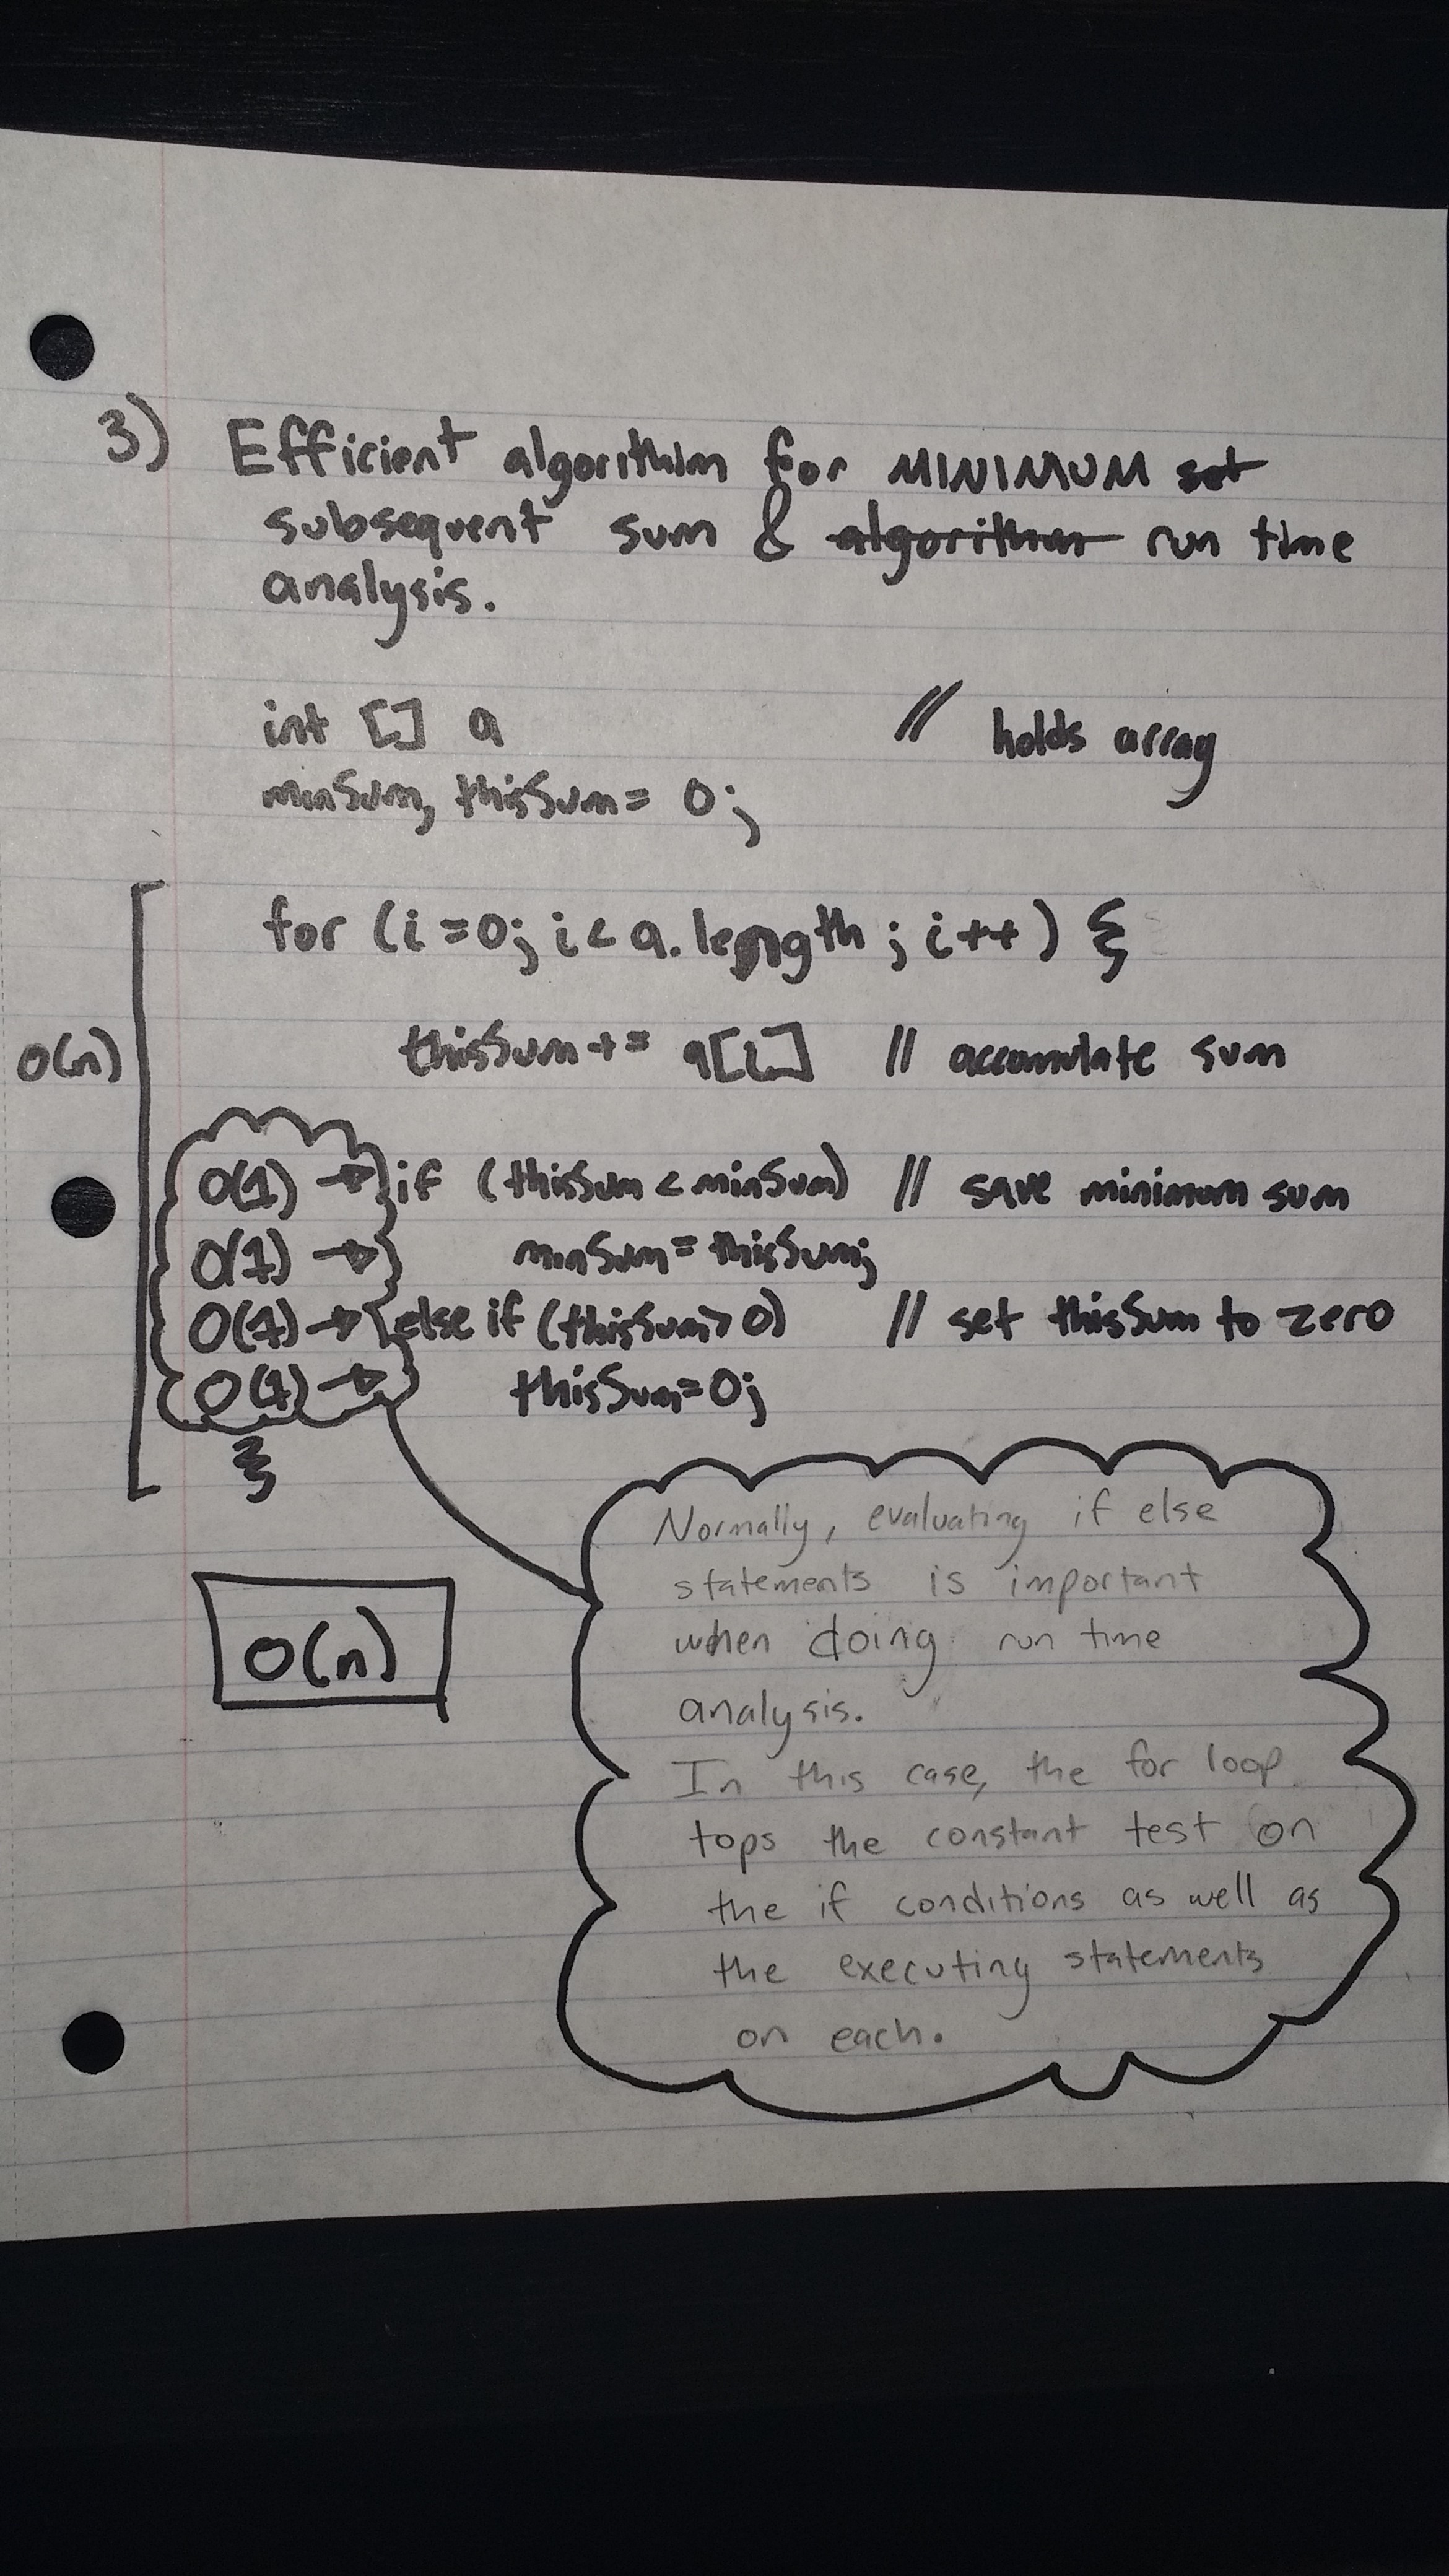 3) Efficient algorithim for MINIMUM set
subsequent sum & algorithm run time
analysis.
int [] a // holds array
minSum, thisSum = 0;
for (i=0; i<a.length; i++) {
O(n)
thisSum += a[i] // accumulate sum
O(1) → if (thisSum < minSum) // save minimum sum
O(1) → minSum = thisSum;
O(1) → else if (thisSum > 0) // set thisSum to zero
O(1) → thisSum = 0;
}
O(n)
Normally, evaluating if else
statements is important
when doing run time
analysis.
In this case, the for loop
tops the constant test on
the if conditions as well as
the executing statements
on each.